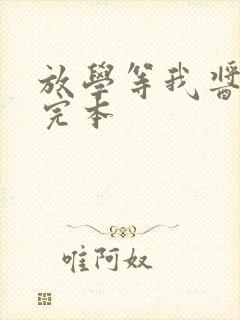 放學等我醬
完本
唯阿奴